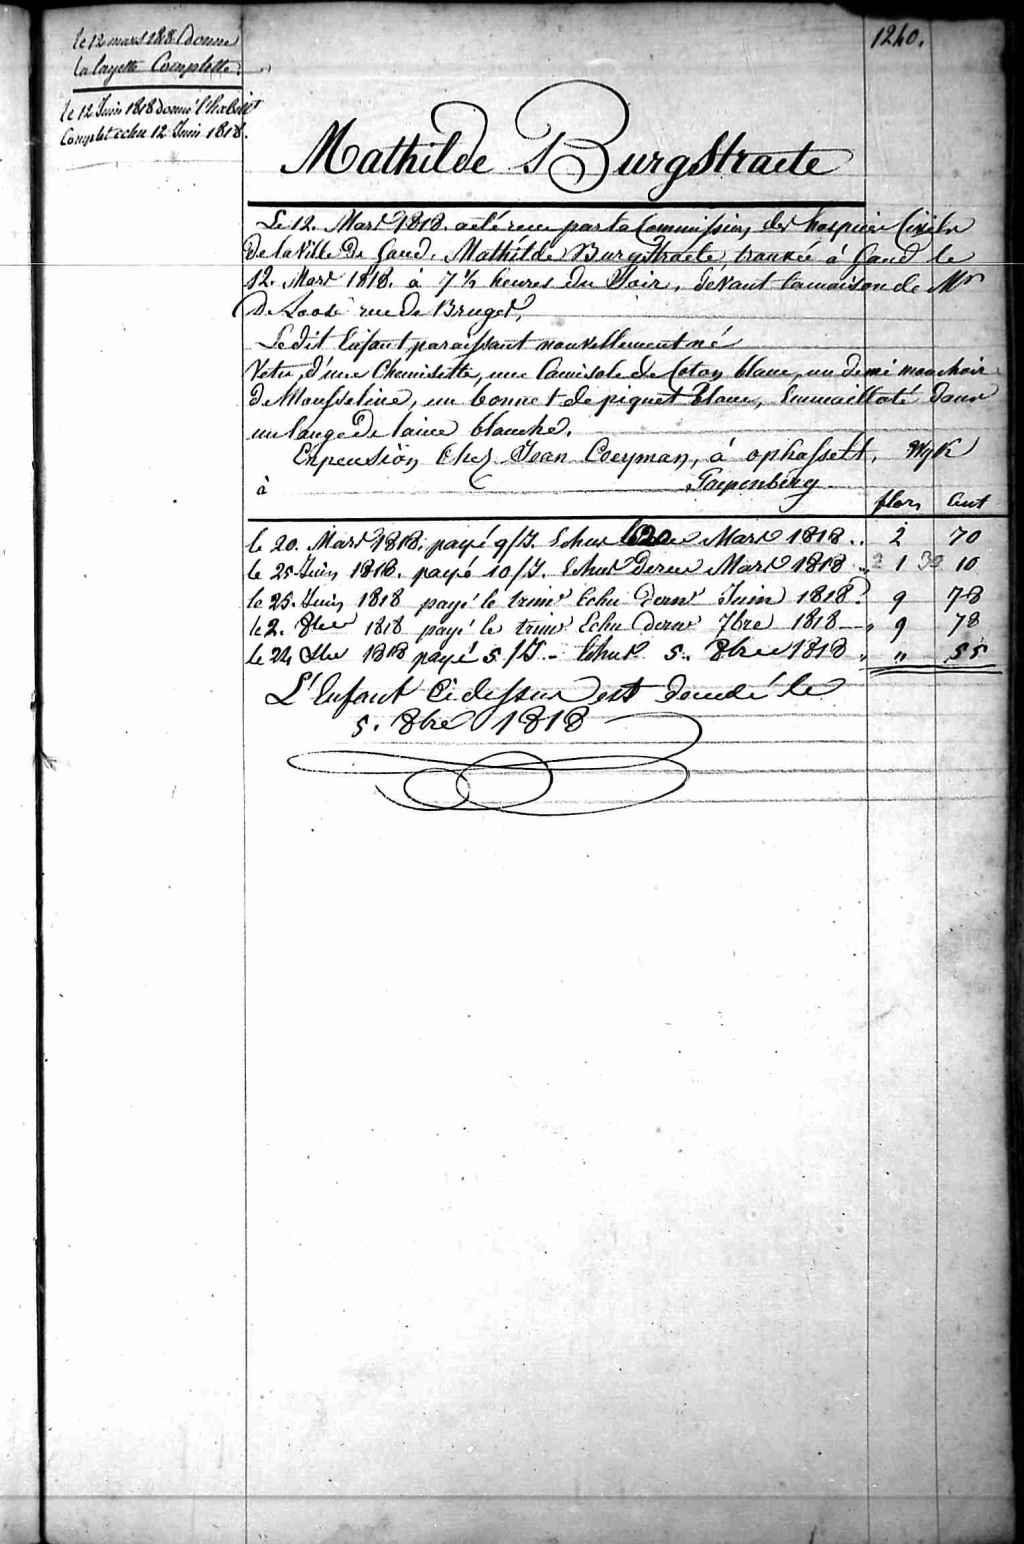 1240.
le 12 mars 1818 donné
la layette Complette.
le 12 Juin 1818 donné l'habist
Complet echu 12 Juin 1818.
Mathilde Burgstraete
Le 12. Mars 1818. a été reçu par la Commission des hospices Civils
de la Ville de Gand. Mathilde Burgstraete trouvée à Gand le
12. Mars 1818. à 7 ½ heures du Soir, devant la maison de Mr
De Loose rue de Bruges,
Le dit Enfant paraissant nouvellement né
Vetu d'une Chemisette, une Camisole de Coton blanc, un demi mouchoir
de Mousseline, un bonnet de piquet blanc, Emmailloté dans
un lange de laine blanche.
En pension Chez Jean Coeyman, à ophasselt, Wyk
à Paepenberg
flors Cent
le 20. Mars 1818. payé 9/J. Echus le 20 Mars 1818.. 2 70
le 25 Juin 1818. payé 10/J. Echus derer Mars 1818 " 1 10
le 25. Juin 1818 payé le trimr Echu dernr Juin 1818. 9 78
le 2. 8bre 1818 payé le trimr Echu dernr 7bre 1818 " 9 78
le 24 1818 payé 5/J. - Echus 5. 8bre 1818 " " 55
L'Enfant Ci dessus est décédé le
5. 8bre 1818